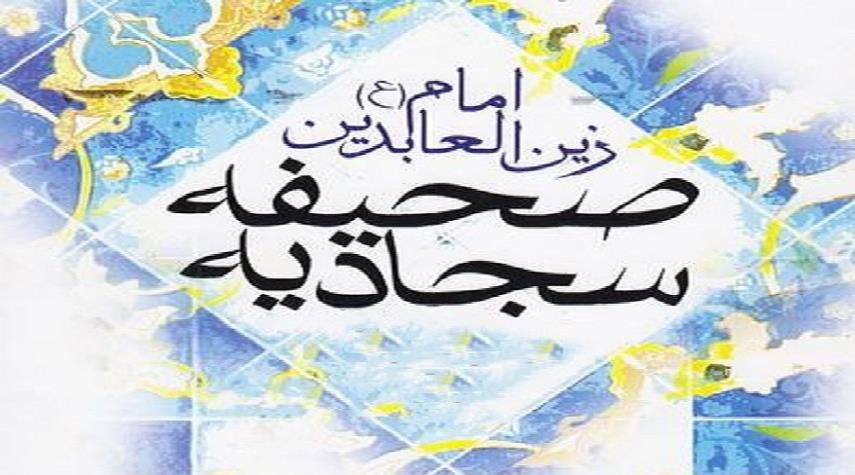 امام (ع)
زین العابدین
صحیفه
سجادیه